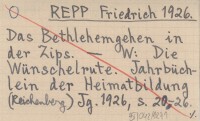 REPP Friedrich 1926.
Das Bethlehemgehen in
der Zips. — W: Die
Wünschelrute. Jahrbüch-
lein der Heimatbildung
(Reichenberg) Jg. 1926, s. 20-26.